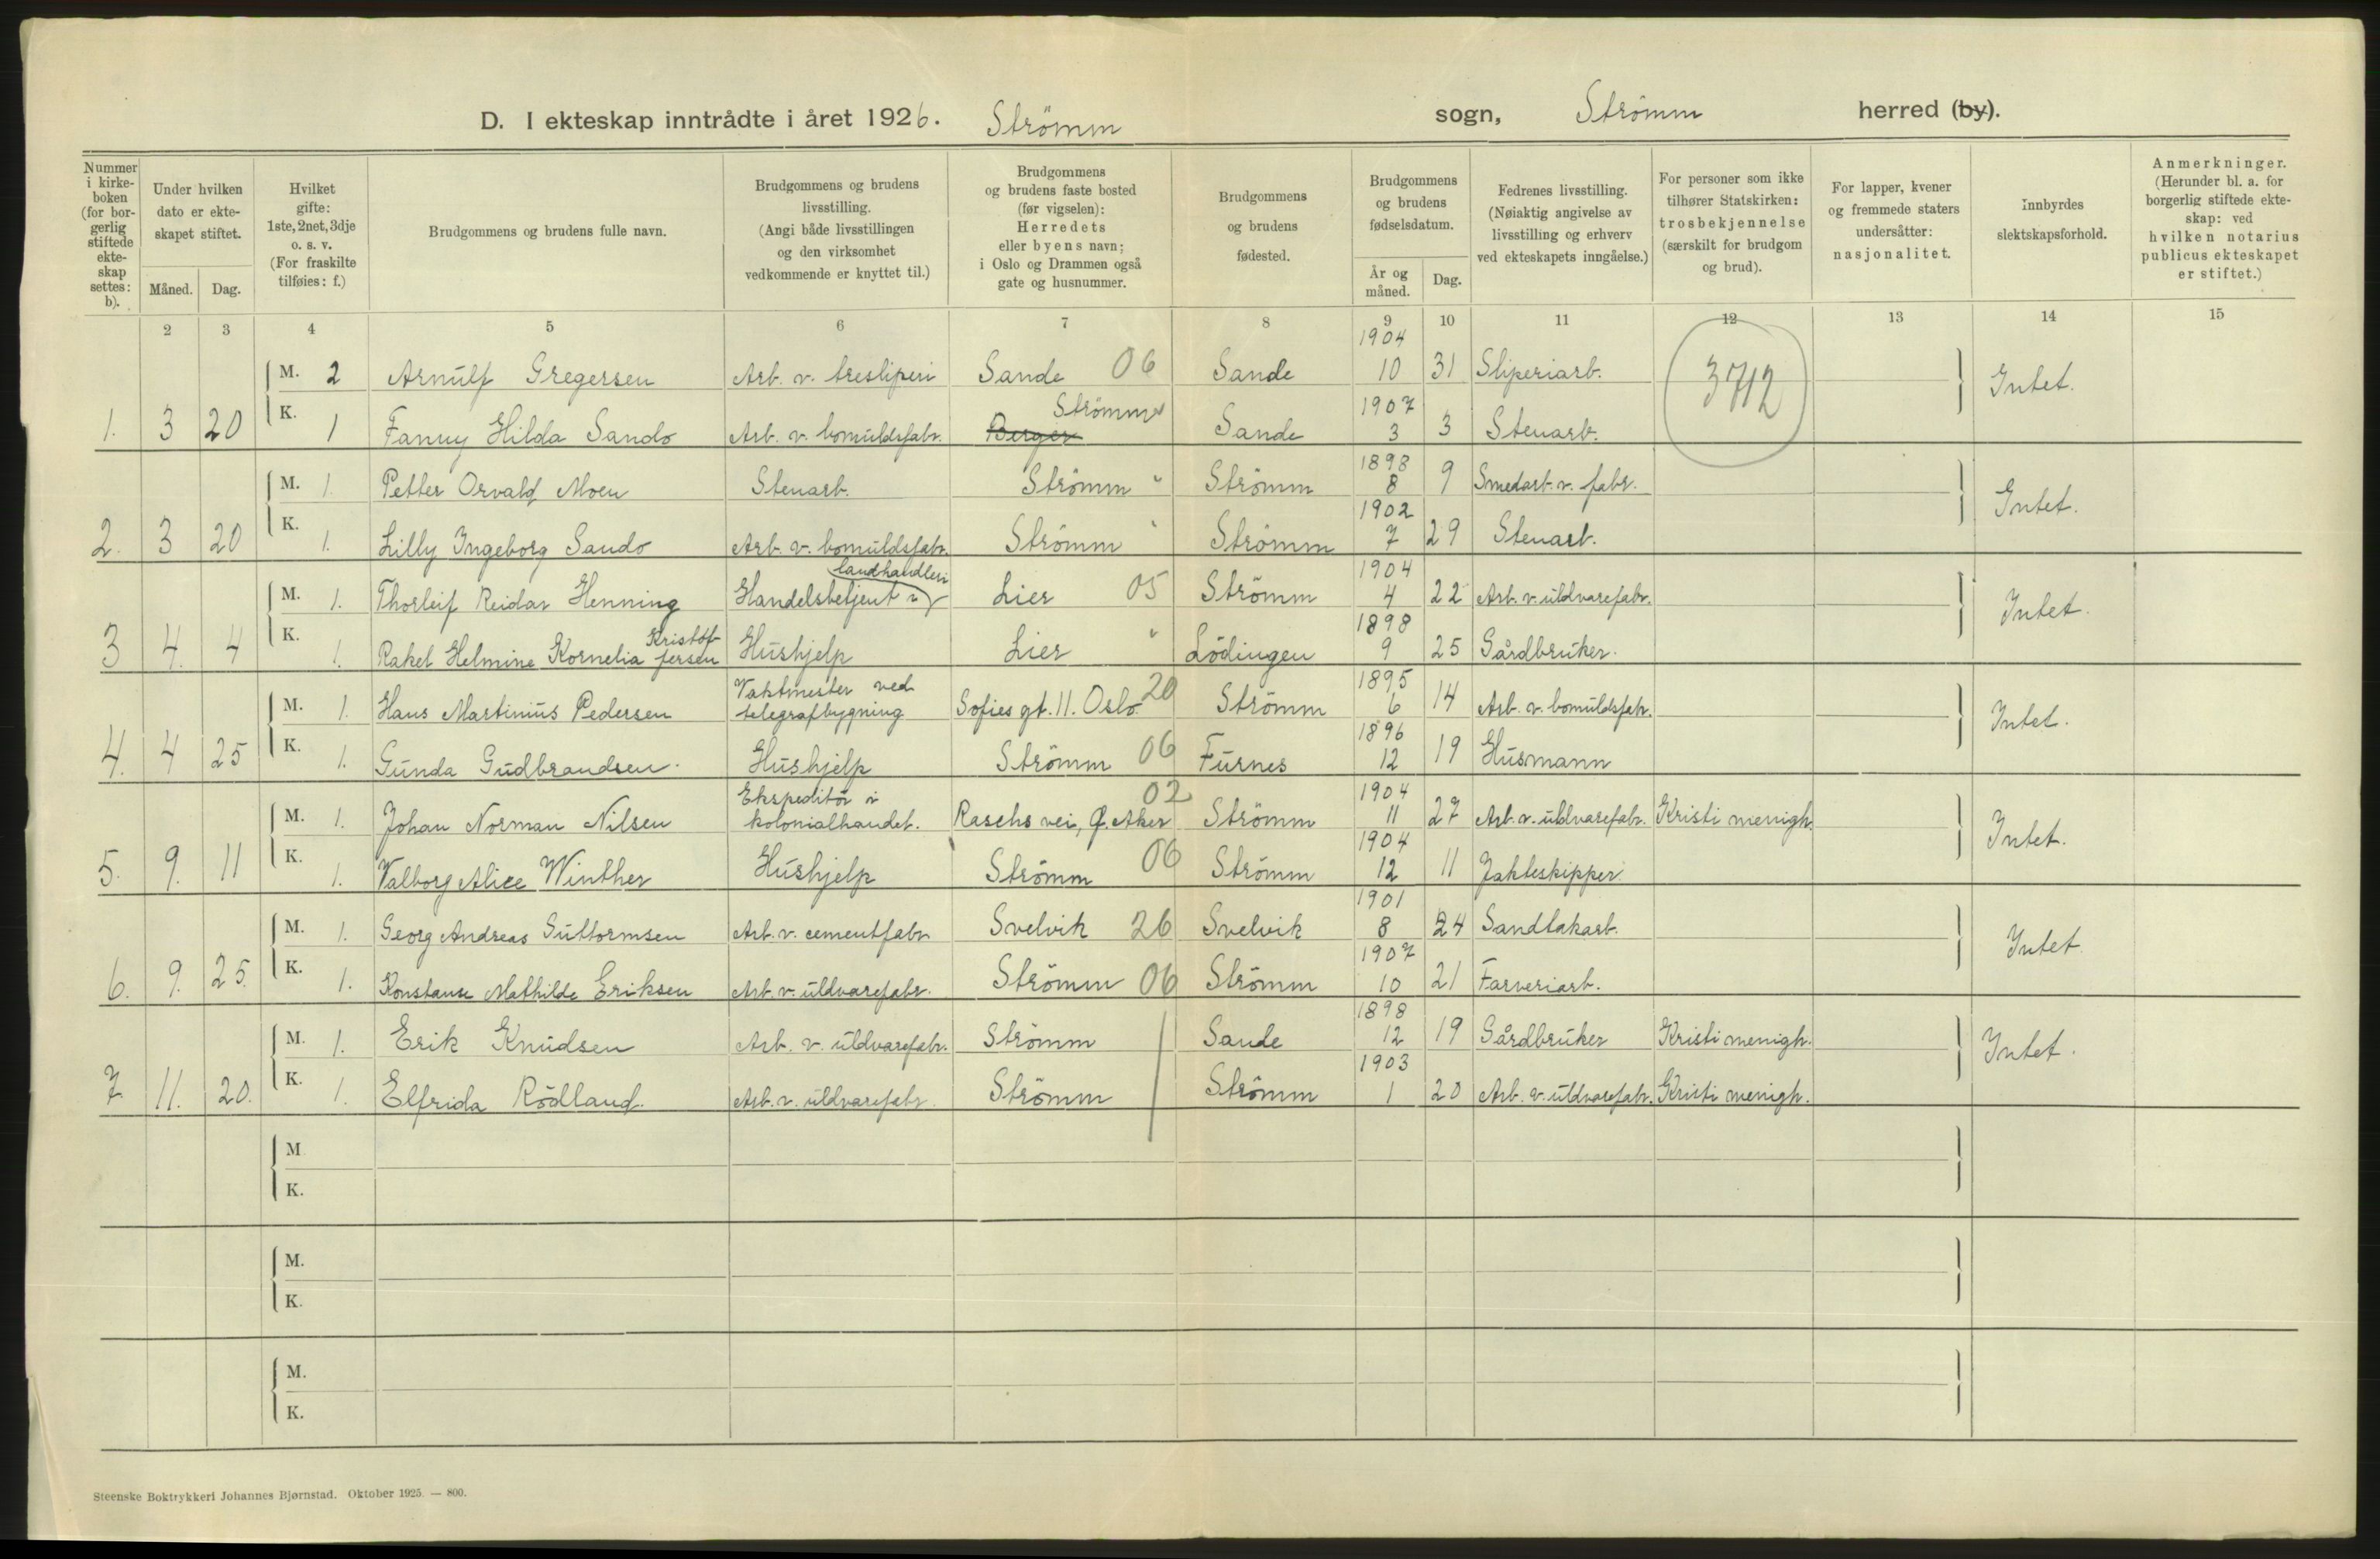 D. I ekteskap inntrådte i året 1926. Strömm sogn, Strömm herred (by).
Nummer i kirke-boken (for bor-gerlig stiftede ekte-skap settes: b).
Under hvilken dato er ekte-skapet stiftet.
Måned. Dag.
Hvilket gifte: 1ste, 2net, 3dje o. s. v. (For fraskilte tilføies: f.)
Brudgommens og brudens fulle navn.
Brudgommens og brudens livsstilling. (Angi både livsstillingen og den virksomhet vedkommende er knyttet til.)
Brudgommens og brudens faste bosted (før vigselen): Herredets eller byens navn; i Oslo og Drammen også gate og husnummer.
Brudgommens og brudens fødested.
Brudgommens og brudens fødselsdatum.
År og måned. Dag.
Fedrenes livsstilling. (Nøiaktig angivelse av livsstilling og erhverv ved ekteskapets inngåelse.)
For personer som ikke tilhører Statskirken: trosbekjennelse (særskilt for brudgom og brud).
For lapper, kvener og fremmede staters undersåtter: nasjonalitet.
Innbyrdes slektskapsforhold.
Anmerkninger. (Herunder bl. a. for borgerlig stiftede ekte-skap: ved hvilken notarius publicus ekteskapet er stiftet.)
2 3 4 5 6 7 8 9 10 11 12 13 14 15
M. 2 Arnulf Gregersen Arb. v. tresliperi Sande 06 Sande 1904 10 31 Sliperiarb. 3712 Intet.
1. 3 20 K. 1 Fanny Hilda Sando Arb. v. bomuldsfabr. Berger Strömm Sande 1907 3 3 Stenarb.
M. 1. Petter Orvald Moen Stenarb. Strömm " Strömm 1898 8 9 Smedarb. v. fabr. Intet.
2. 3 20 K. 1. Lilly Ingeborg Sando Arb. v. bomuldsfabr. Strömm " Strömm 1902 7 29 Stenarb.
M. 1. Thorleif Reidar Henning Handelsbetjent i landhandleri Lier 05 Strömm 1904 4 22 Arb. v. uldvarefabr. Intet.
3 4. 4 K. 1. Rakel Helmine Kornelia Kristof-fersen Hushjelp Lier " Lödingen 1898 9 25 Gårdbruker.
M. 1. Hans Martinius Pedersen Vaktmester ved telegrafbygning Sofies gt. 11. Oslo 20 Strömm 1895 6 14 Arb. v. bomuldsfabr. Intet.
4. 4 25 K. 1. Gunda Gudbrandsen. Hushjelp Strömm 06 Furnes 1896 12 19 Husmann
M. 1. Johan Norman Nilsen Ekspeditör i kolonialhandel. Raschs vei, Ø. Aker 02 Strömm 1904 11 27 Arb. v. uldvarefabr. Kristi menigh. Intet.
5. 9. 11 K. 1. Valborg Alice Winther Hushjelp Strömm 06 Strömm 1904 12 11 Jakteskipper.
M. 1. Georg Andreas Guttormsen Arb. v. cementfabr. Svelvik 26 Svelvik 1901 8 24 Sandtakarb. Intet.
6. 9. 25. K. 1. Konstanse Mathilde Eriksen Arb. v. uldvarefabr. Strömm 06 Strömm 1907 10 21 Farveriarb.
M. 1. Erik Knudsen Arb. v. uldvarefabr. Strömm Sande 1898 12 19 Gårdbruker Kristi menigh. Intet.
7. 11. 20. K. 1. Elfrida Rödland. Arb. v. uldvarefabr. Strömm Strömm 1903 1 20 Arb. v. uldvarefabr. Kristi menigh.
M
K.
M.
K.
M.
K.
Steenske Boktrykkeri Johannes Bjørnstad. Oktober 1925. — 800.